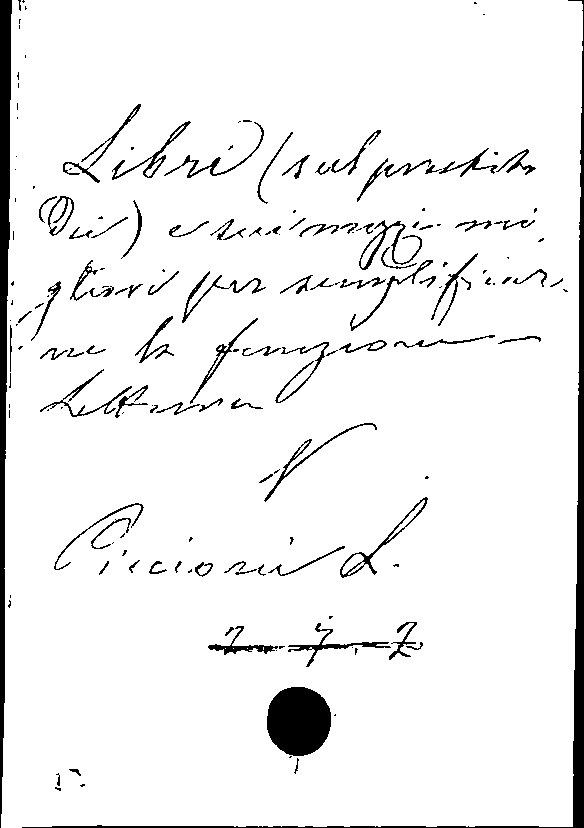 Libri (sul prestito
Dei) e sui mezzi mi
gliori per semplificar-
ne la funzione -
Lettura
V
Piccioni L.